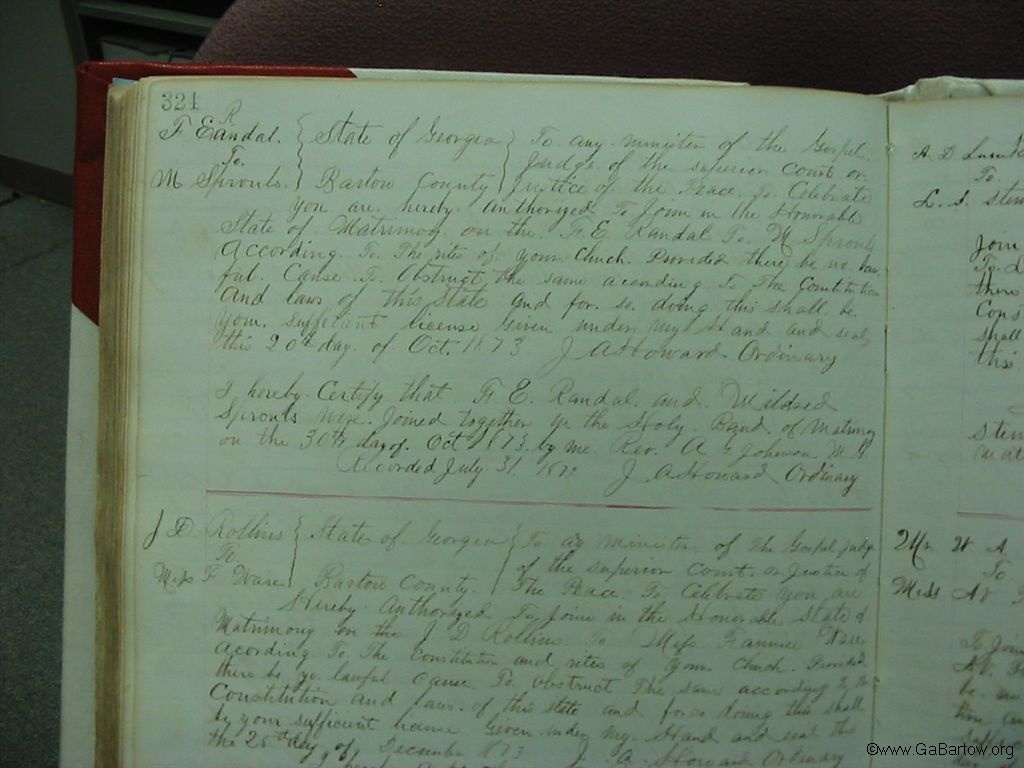 324
R
F. E. Randal. State of Georgia To any minister of the Gospel.
To. Judge of the superior Court or
M Sprouls. Bartow County Justice of the Peace. To. Celebrate
you are. hereby. Authorized To Join in the Honorable
State of Matrimony on the. F. E. Randal To. M Sprouls
According. To. The rites of. your Chuch. Provided there be no law
ful. Cause. To. Obstruct the same according To The Constitution
And laws of this State and for. so. doing this shall be
your. sufficient license Given under my Hand and seal,
this 20th day. of. Oct. 1873 J A Howard Ordinary
I hereby. Certify that F. E. Randal. and. Mildred
Sprouls were. Joined together in the Holy. Band. of Matrimony
on the 30th day of. Oct 1873. by me. Rev. A G Johnson M. G.
Recorded July. 31. J A Howard Ordinary
J D. Rollins State of Georgia To any Minister. of The Gospel Judge
To. of the superior Court. or Justice of
Miss F Ware Bartow County. The Peace To Celebrate you are
Hereby Authorized To Join in the Honorable State of
Matrimony on the J D Rollins. To Miss. Fannie Ware
Acording. To. The Constitution and rites of your Chuch. Provided
there be no lawful Cause. To obstruct The same according to the
Constitution and laws. of this state and for so doing this shall
by your sufficient Given under my. Hand and seal this
the 25th day. of. December 1873 J. A. Howard Ordinary
A D
To
L. S. Stew
Join
To D
there
Cons
shall
this
Stew
Mat
Mr. W A
To
Miss
To Join
be. no
©www.GaBartow.org